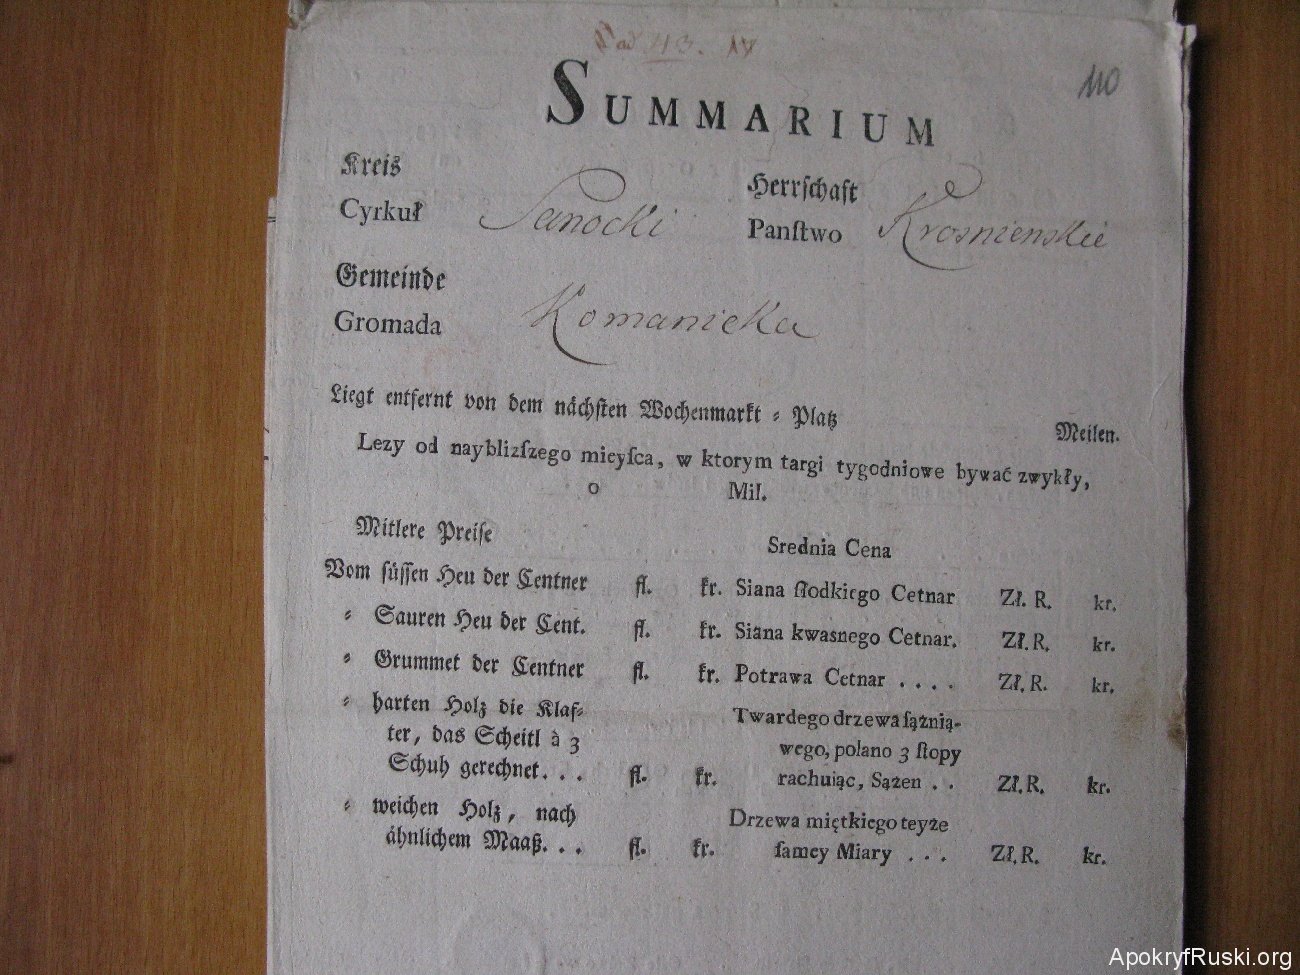 ad 113. 17
110
SUMMARIUM
Kreis
Cyrkuł Sanocki
Herrſchaft
Panſtwo Krosnienskie
Gemeinde
Gromada Komanicka
Liegt entfernt von dem nächſten Wochenmarkt ⸗ Platz Meilen.
Lezy od nayblizſzego mieyſca, w ktorym targi tygodniowe bywać zwykły,
o Mil.
Mitlere Preiſe Srednia Cena
Vom ſüſſen Heu der Centner fl. kr. Siana ſłodkiego Cetnar Zł. R. kr.
⸗ Sauren Heu der Cent. fl. kr. Siana kwasnego Cetnar. Zł. R. kr.
⸗ Grummet der Centner fl. kr. Potrawa Cetnar . . . . Zł. R. kr.
⸗ harten Holz die Klaf⸗ Twardego drzewa ſążnią-
ter, das Scheitl à 3 wego, polano 3 ſtopy
Schuh gerechnet. . . fl. kr. rachuiąc, Sążen . . Zł. R. kr.
⸗ weichen Holz, nach Drzewa miętkiego teyże
ähnlichem Maaß. . . fl. kr. ſamey Miary . . . Zł. R. kr.
ApokryfRuski.org